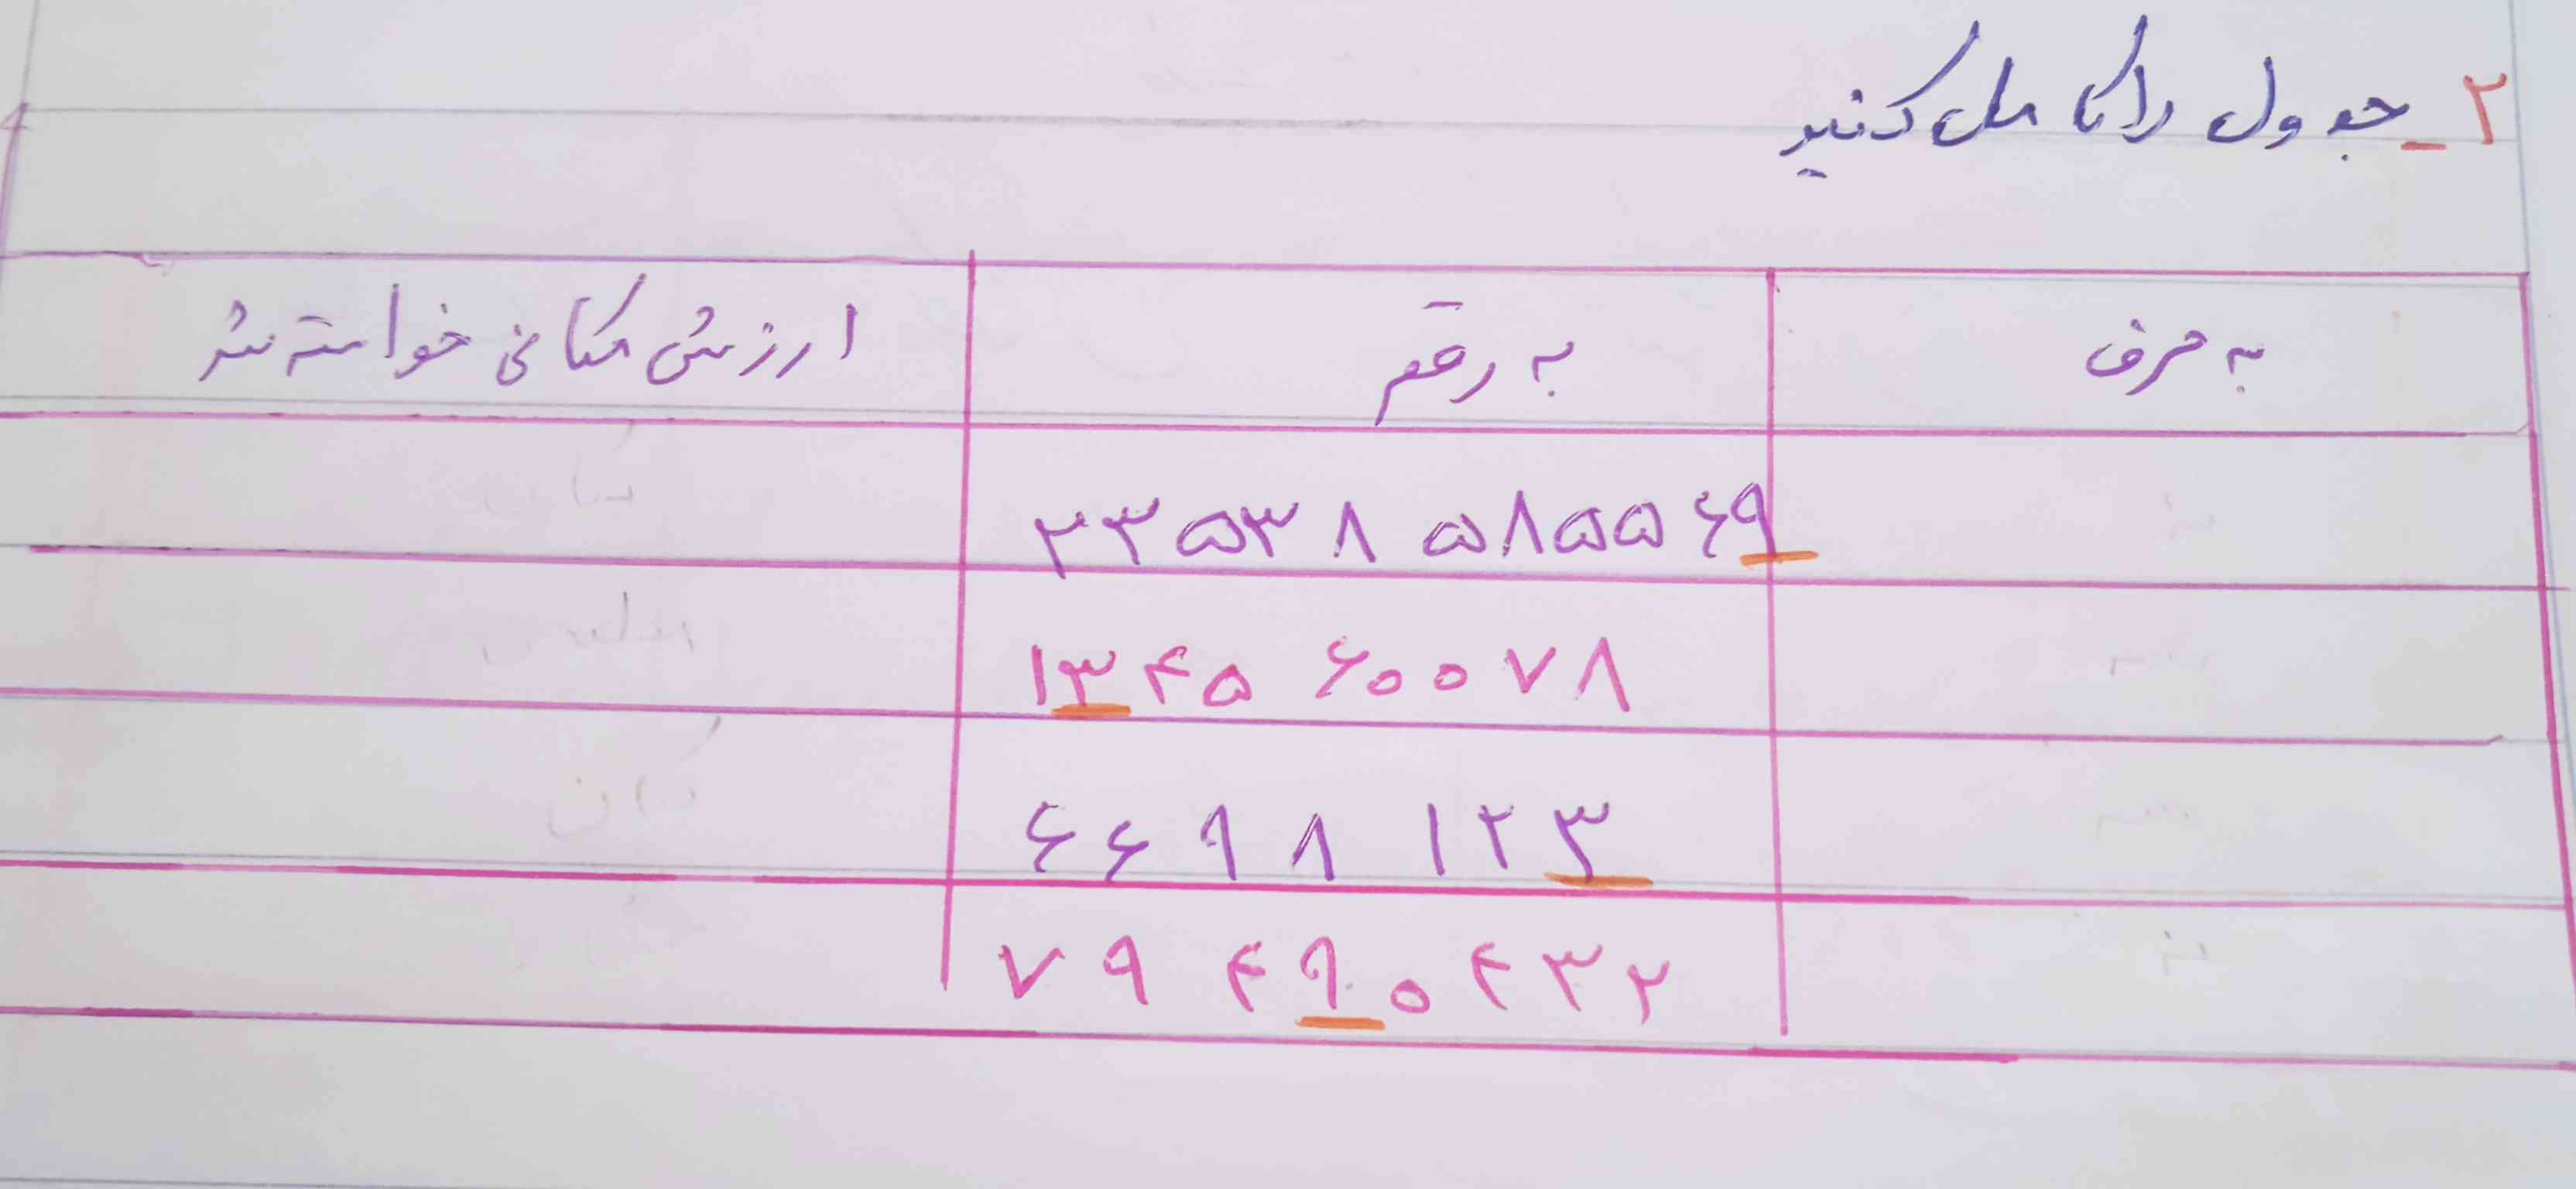 ۲_ جدول را کامل کنید
به حرف به رقم ارزش مکانی خواسته شد
۲۳۵۳۸۵۸۵۵۶۹
۱۳۴۵۶۰۰۷۸
۶۶۹۸۱۲۳
۷۹۴۹۰۴۳۲